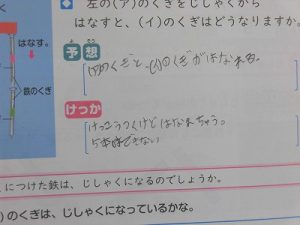 左の(ア)のくぎをじしゃくから
はなすと、(イ)のくぎはどうなりますか。
はなす。
鉄のくぎ
予想
よ そう
(ア)のくぎと、(イ)のくぎがはなれる。
けっか
けっこうつくけどはなれちゃう。
できない
につけた鉄は、じしゃくになるのでしょうか。
)のくぎは、じしゃくになっているかな。